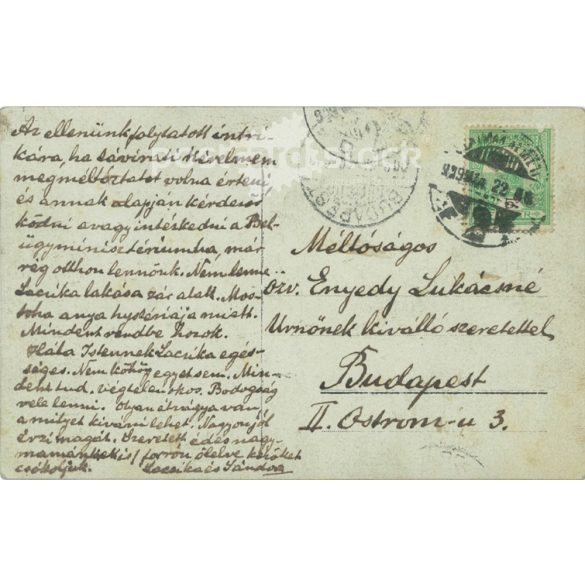 Az ellenünk folytatott intri-
kára, ha sávirati kérelmem
megméltóztatot volna érteni
és annak alapján kérdező
ködni avagy intéskedni a Bel-
ügyminisztériumba, már
rég otthon lennénk. Nem lenne
Lacika lakása zár alatt. Mos-
toha anya hysteriája miatt.
Mindent rendbe hozok.
Hála Istennek Lacika egés-
séges. Nem köhög egyet sem. Min-
dent tud. végtelen okos. Bodogság
vele lenni. Olyan étvágya van
a milyet kivánni lehet. Nagyon jól
érzi magát. Szeretett édes nagy-
mamánkat is forrón ölelve kezüket
csókoljuk. Lacika és Sándor
Méltóságos
özv. Enyedy Lukácsné
Urnőnek kiválló szeretettel
Budapest
II. Ostrom-u 3.
BUDAPEST